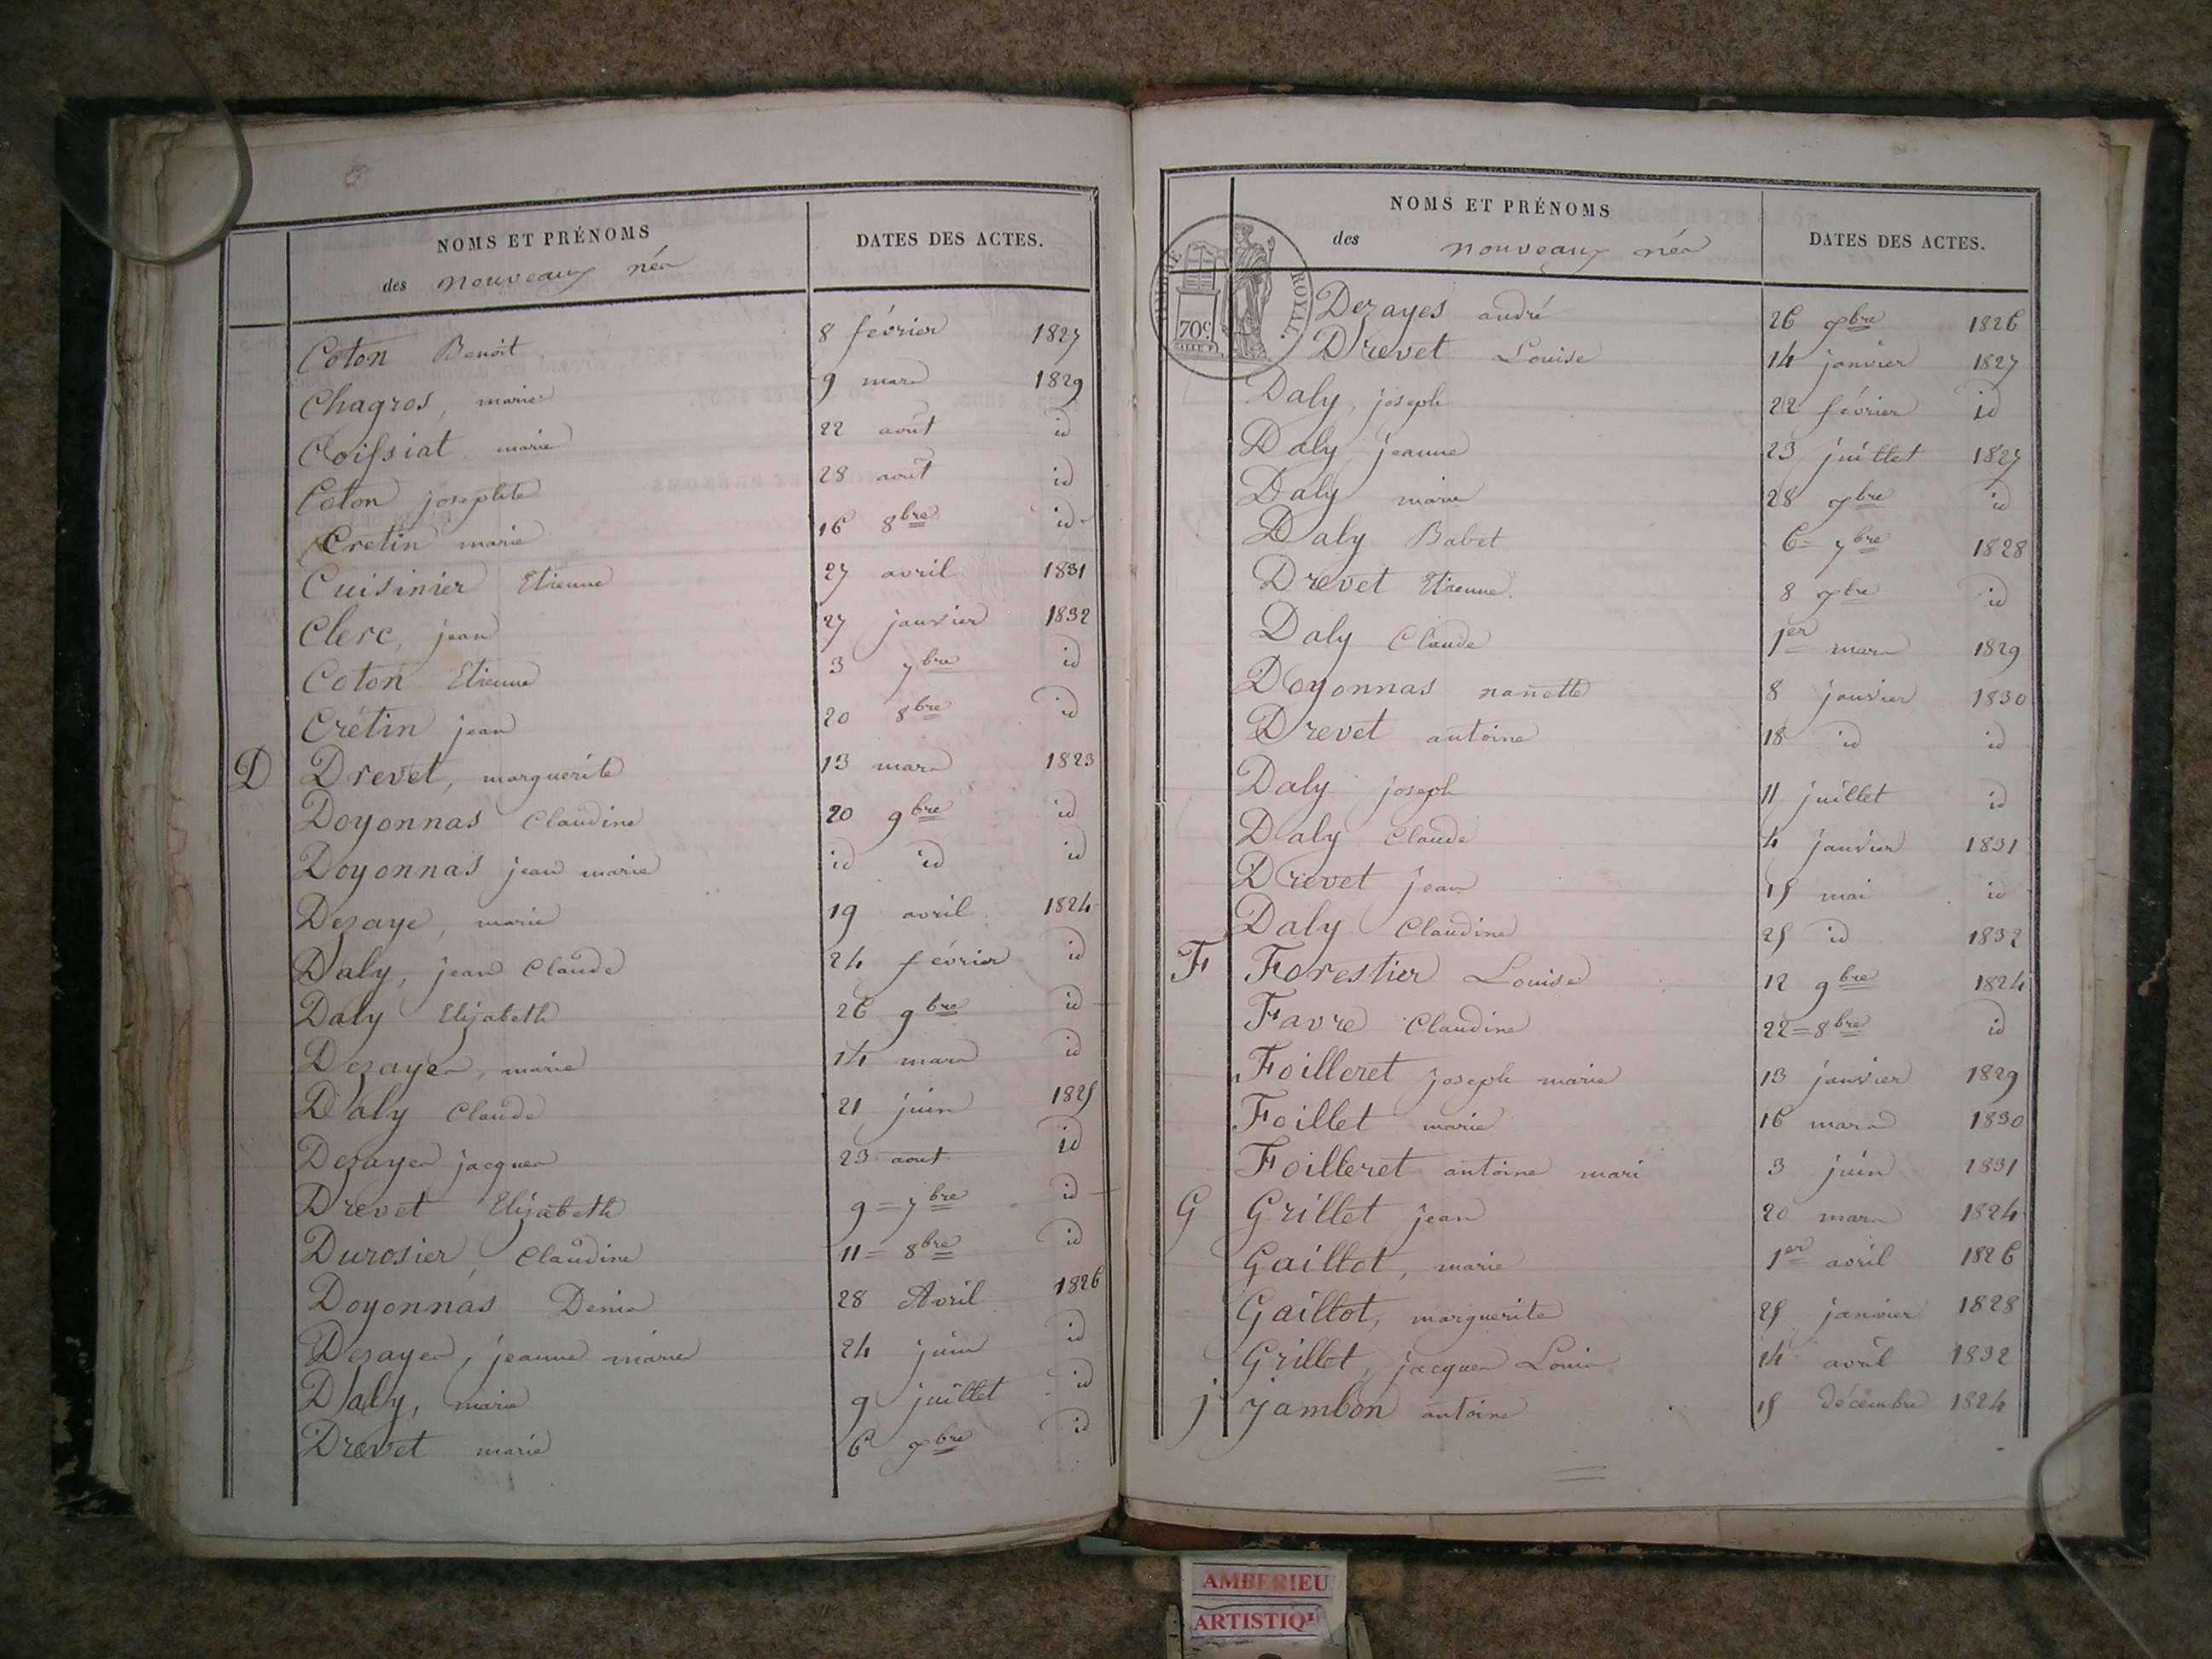 NOMS ET PRÉNOMS
des nouveaux nés
DATES DES ACTES.
Coton Benoit 8 février 1827
Chagros, marie 9 mars 1829
Coissiat marie 22 aout id
Coton josephte 28 aout id
Cretin marie 16 8bre id
Cuisinier Etienne 27 avril 1831
Clerc, jean 27 janvier 1832
Coton Etienne 3 7bre id
Crétin jean 20 8bre id
D Drevet, marguerite 13 mars 1823
Doyonnas Claudine 20 9bre id
Doyonnas jean marie id id id
Dezaye, marie 19 avril 1824
Daly, jean Claude 24 février id
Daly Elizabeth 26 9bre id
Dezayes, marie 14 mars id
Daly Claude 21 juin 1825
Dezayes jacques 23 aout id
Drevet Elizabeth 9 = 7bre id
Durosier, Claudine 11 = 8bre id
Doyonnas Denis 28 Avril 1826
Dezayes, jeanne marie 24 juin id
Daly, marie 9 juillet id
Drevet marie 6 9bre id
NOMS ET PRÉNOMS
des nouveaux nés
DATES DES ACTES.
TIMBRE ROYAL.
70c
Dezayes andré 26 9bre 1826
Drevet Louise 14 janvier 1827
Daly, joseph 22 février id
Daly jeanne 23 juillet 1827
Daly marie 28 9bre id
Daly Babet 6 = 7bre 1828
Drevet Etienne 8 9bre id
Daly Claude 1er mars 1829
Doyonnas nanette 8 janvier 1830
Drevet antoine 18 id id
Daly joseph 11 juillet id
Daly Claude 4 janvier 1831
Drevet jean 15 mai id
Daly Claudine 25 id 1832
F Forestier Louise 12 9bre 1824
Favre Claudine 22 = 8bre id
Foilleret joseph marie 13 janvier 1829
Foillet marie 16 mars 1830
Foilleret antoine mari 3 juin 1831
G Grillet jean 20 mars 1824
Gaillot, marie 1er avril 1826
Gaillot, marguerite 25 janvier 1828
Grillet, jacques Louis 14 avril 1832
j jambon antoine 15 décembre 1824
AMBERIEU
ARTISTIQ